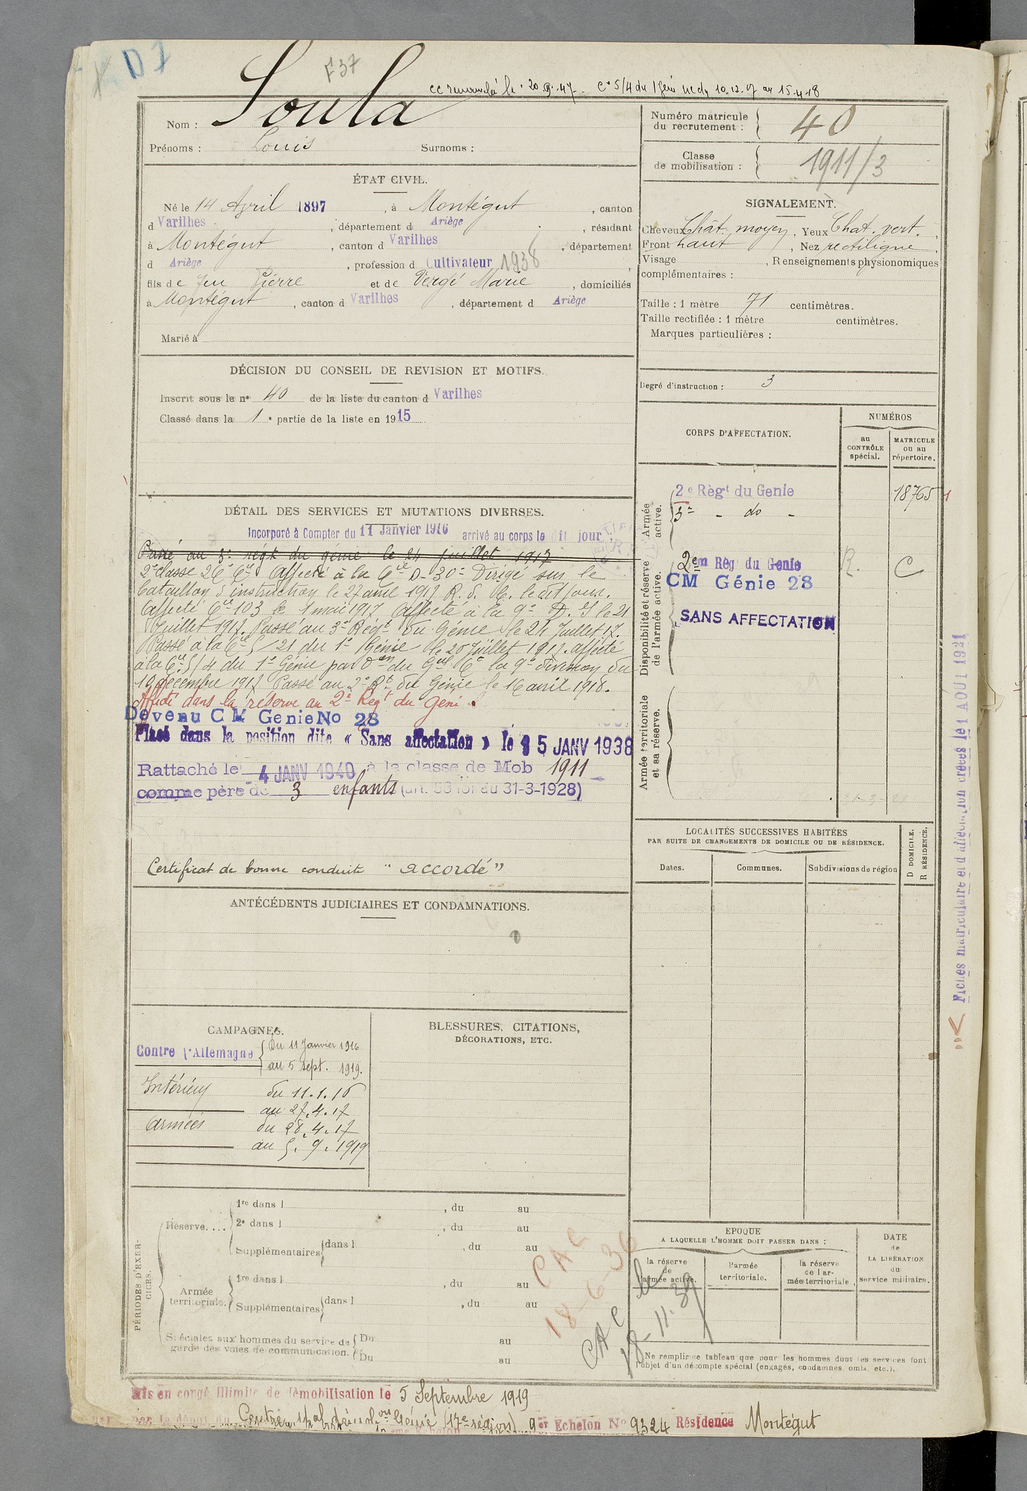 KD1
F 37
cc renouvelé le 20.9.47. Cie 5/4 du 1 Génie UC du 10.12.17 au 15.4.18
Nom : Soula
Prénoms : Louis Surnoms :
ÉTAT CIVIL.
Né le 14 Avril 1897, à Montégut, canton
d Varilhes, département d Ariège, résidant
à Montégut, canton d Varilhes, département
d Ariège, profession d Cultivateur 1938
fils de feu Pierre et de Vergé Marie, domiciliés
à Montégut, canton d Varilhes, département d Ariège
Marié à
DÉCISION DU CONSEIL DE REVISION ET MOTIFS.
Inscrit sous le n° 40 de la liste du canton d Varilhes
Classé dans la 1e partie de la liste en 1915
DÉTAIL DES SERVICES ET MUTATIONS DIVERSES.
Incorporé à Compter du 11 Janvier 1916 arrivé au corps le dit jour
Passé au 3e régt du génie le 21 Juillet 1917
2e classe 26e Cie Affecté à la Cie D-30 Dirigé sur le
bataillon d'instruction le 27 avril 1917. le dit jour.
Affecté Cie 103 le 1 mai 1917 Affecté à la 9e le 21
Juillet 1917. Passé au 3e Régt du Génie le 21 Juillet 17.
Passé à la Cie 21 du 1er Génie le 20 Juillet 1917. affecté
à la Cie 5/4 du 1er Génie par Don du Gal Ct la 9e division du
19 décembre 1917 Passé au 2e Rt du Génie le 16 avril 1918.
Affecté dans la réserve au 2e Régt du Génie.
Devenu C M Genie No 28
Placé dans la position dite « Sans affectation » le 15 JANV 1938
Rattaché le 4 JANV 1940 à la classe de Mob 1911
comme père de 3 enfants (art. 58 loi du 31-3-1928)
Certificat de bonne conduite "accordé"
ANTÉCÉDENTS JUDICIAIRES ET CONDAMNATIONS.
CAMPAGNES.
Contre l'Allemagne { Du 11 Janvier 1916
au 5 Sept. 1919.
Intérieur du 11.1.16
au 27.4.17
Armées du 28.4.17
au 5.9.1919
BLESSURES, CITATIONS,
DÉCORATIONS, ETC.
PÉRIODES D'EXERCICES.
Réserve....
1re dans l , du au
2e dans l , du au
Supplémentaires { dans l , du au
Armée territoriale.
1re dans l , du au
Supplémentaires { dans l , du au
Spéciales aux hommes du service de garde des voies de communication. { Du au
Du au
CAC
18-6-36
CAC le
18-11-39
Mis en congé illimité de démobilisation le 5 Septembre 1919
Génie (17e région) 9er Echelon N° 9324 Résidence Montégut
Numéro matricule du recrutement : 40
Classe de mobilisation : 1911/3
SIGNALEMENT.
Cheveux Chât. moyen, Yeux Chat. vert.
Front haut, Nez rectiligne
Visage , Renseignements physionomiques
complémentaires :
Taille : 1 mètre 71 centimètres.
Taille rectifiée : 1 mètre centimètres.
Marques particulières :
Degré d'instruction : 3
CORPS D'AFFECTATION.
NUMÉROS
au CONTRÔLE spécial.
MATRICULE ou au répertoire.
Armée active.
2e Régt du Genie 18765
3e - do -
Disponibilité et réserve de l'armée active.
2em Rég du Genie R. C
CM Génie 28
SANS AFFECTATION
Armée territoriale et sa réserve.
LOCALITÉS SUCCESSIVES HABITÉES
PAR SUITE DE CHANGEMENTS DE DOMICILE OU DE RÉSIDENCE.
Dates.
Communes.
Subdivisions de région
D DOMICILE.
R RÉSIDENCE.
EPOQUE
A LAQUELLE L'HOMME DOIT PASSER DANS :
la réserve de l'armée active.
l'armée territoriale.
la réserve de l'armée territoriale.
DATE
de
LA LIBÉRATION
du
service militaire.
Ne remplir ce tableau que pour les hommes dont les services font
l'objet d'un décompte spécial (engagés, condamnés, omis, etc.).
Fiches matriculaire et d'affectation créées le 11 AOUT 1921